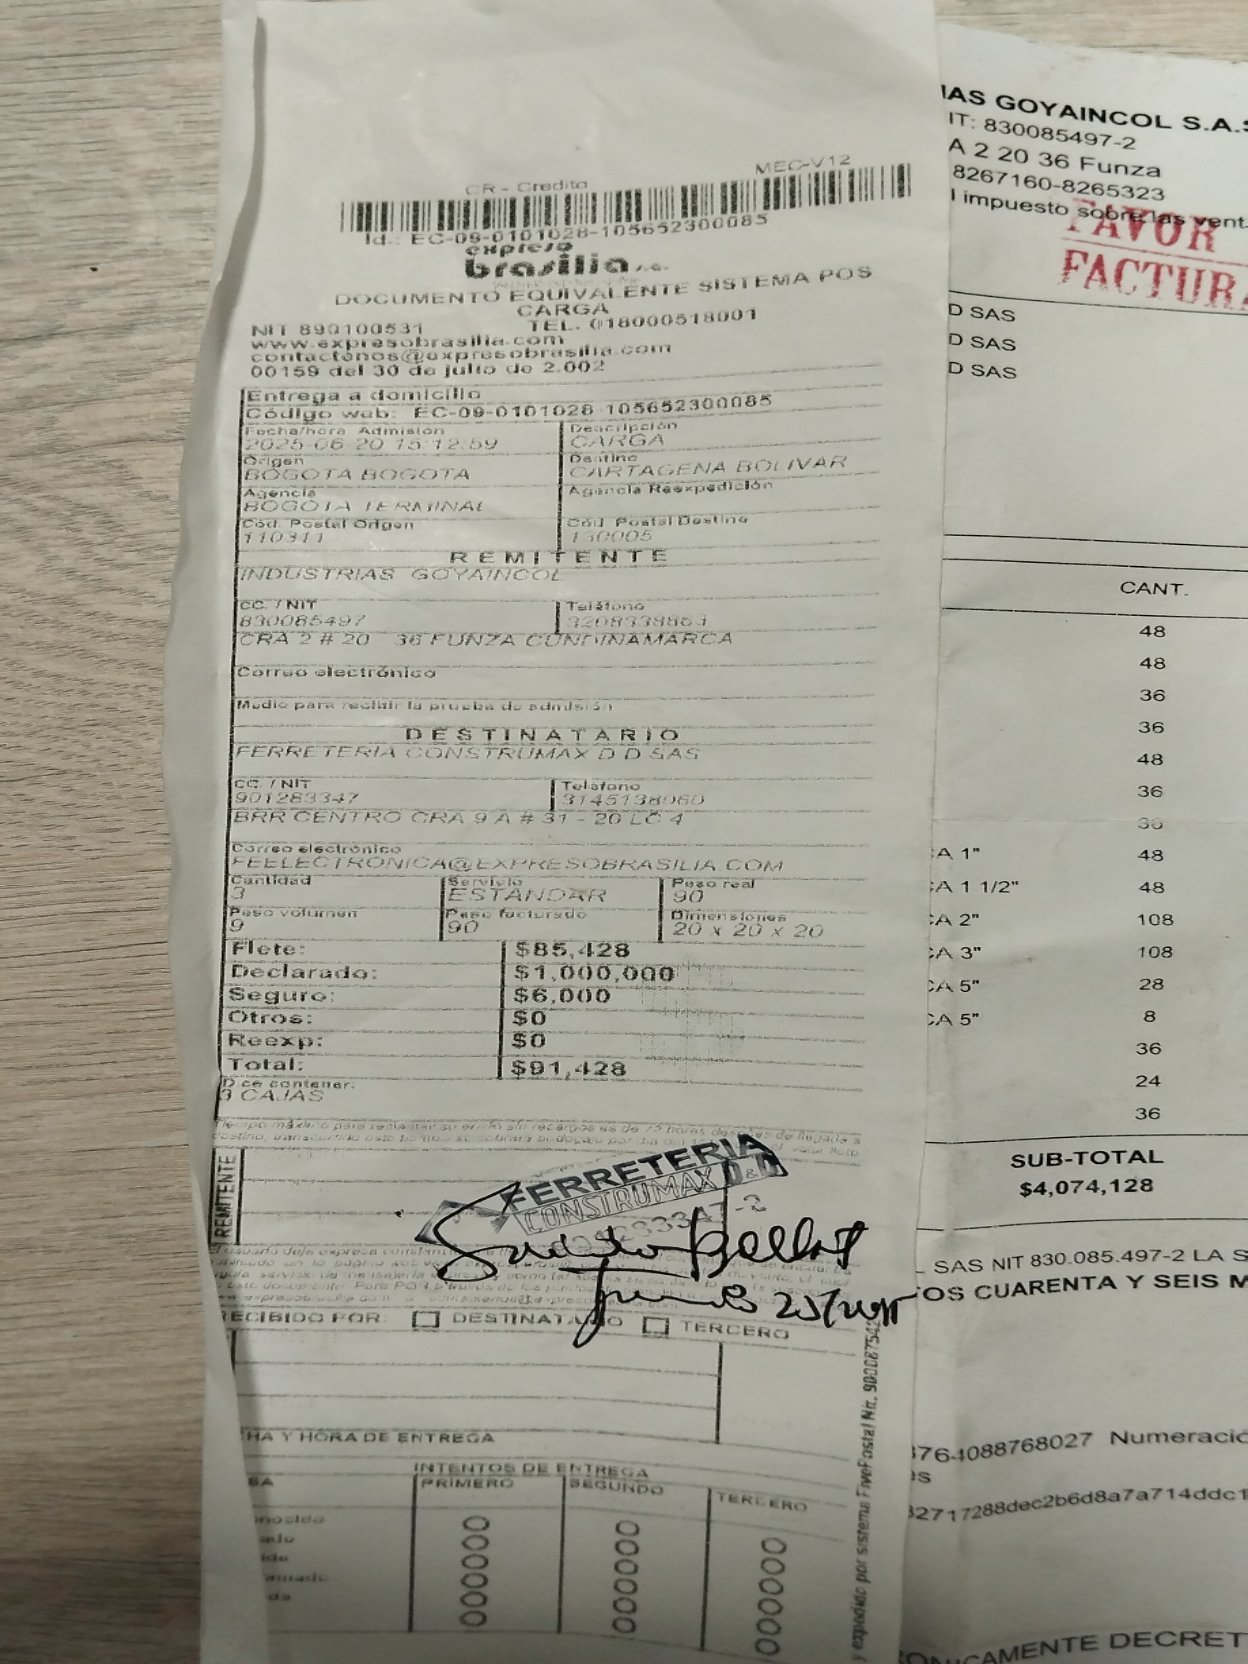 CR - Credito
MEC-V12
Id.: EC-09-0101028-105652300085
expreso
brasilia s.a.
DOCUMENTO EQUIVALENTE SISTEMA POS
CARGA
NIT 890100531 TEL. 018000518001
www.expresobrasilia.com
contactenos@expresobrasilia.com
00159 del 30 de julio de 2.002
Entrega a domicilio
Código web: EC-09-0101028-105652300085
Fecha/hora Admisión Descripción
2025-06-20 15:12:59 CARGA
Origen Destino
BOGOTA BOGOTA CARTAGENA BOLIVAR
Agencia Agencia Reexpedición
BOGOTA TERMINAL
Cód. Postal Origen Cód. Postal Destino
110311 130005
REMITENTE
INDUSTRIAS GOYAINCOL
CC. / NIT Teléfono
830085497 3208338863
CRA 2 # 20 36 FUNZA CUNDINAMARCA
Correo electrónico
Medio para recibir la prueba de admisión
DESTINATARIO
FERRETERIA CONSTRUMAX D D SAS
CC. / NIT Teléfono
901283347 3145138060
BRR CENTRO CRA 9 A # 31 - 20 LC 4
Correo electrónico
FEELECTRONICA@EXPRESOBRASILIA.COM
Cantidad Servicio Peso real
3 ESTANDAR 90
Peso volumen Peso facturado Dimensiones
9 90 20 x 20 x 20
Flete: $85,428
Declarado: $1,000,000
Seguro: $6,000
Otros: $0
Reexp: $0
Total: $91,428
Dice contener:
3 CAJAS
REMITENTE
FERRETERIA
CONSTRUMAX D&D
901283347-2
RECIBIDO POR: DESTINATARIO TERCERO
HA Y HORA DE ENTREGA
INTENTOS DE ENTREGA
PRIMERO SEGUNDO TERCERO
y expedido por sistema FivePostal Nit. 90008754
IAS GOYAINCOL S.A.S
IT: 830085497-2
A 2 20 36 Funza
8267160-8265323
l impuesto sobre las vent
FAVOR
FACTURA
D SAS
D SAS
D SAS
CANT.
48
48
36
36
48
36
36
CA 1" 48
CA 1 1/2" 48
CA 2" 108
CA 3" 108
CA 5" 28
CA 5" 8
36
24
36
SUB-TOTAL
$4,074,128
SAS NIT 830.085.497-2 LA S
TOS CUARENTA Y SEIS M
8764088768027 Numeració
es
82717288dec2b6d8a7a714ddc1
ONICAMENTE DECRET